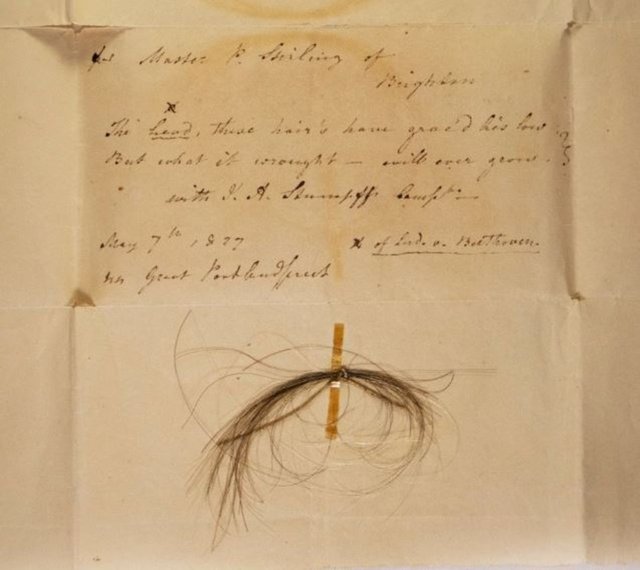 for Master P. Stirling of
Brighton
x
The head, these hair's have grac'd his low
But what it wrought — will ever grow.
with J. A. Stumpff's Compts —
May 7th 1827
44 Great Portland Street
x of Lud. v. Beethoven.